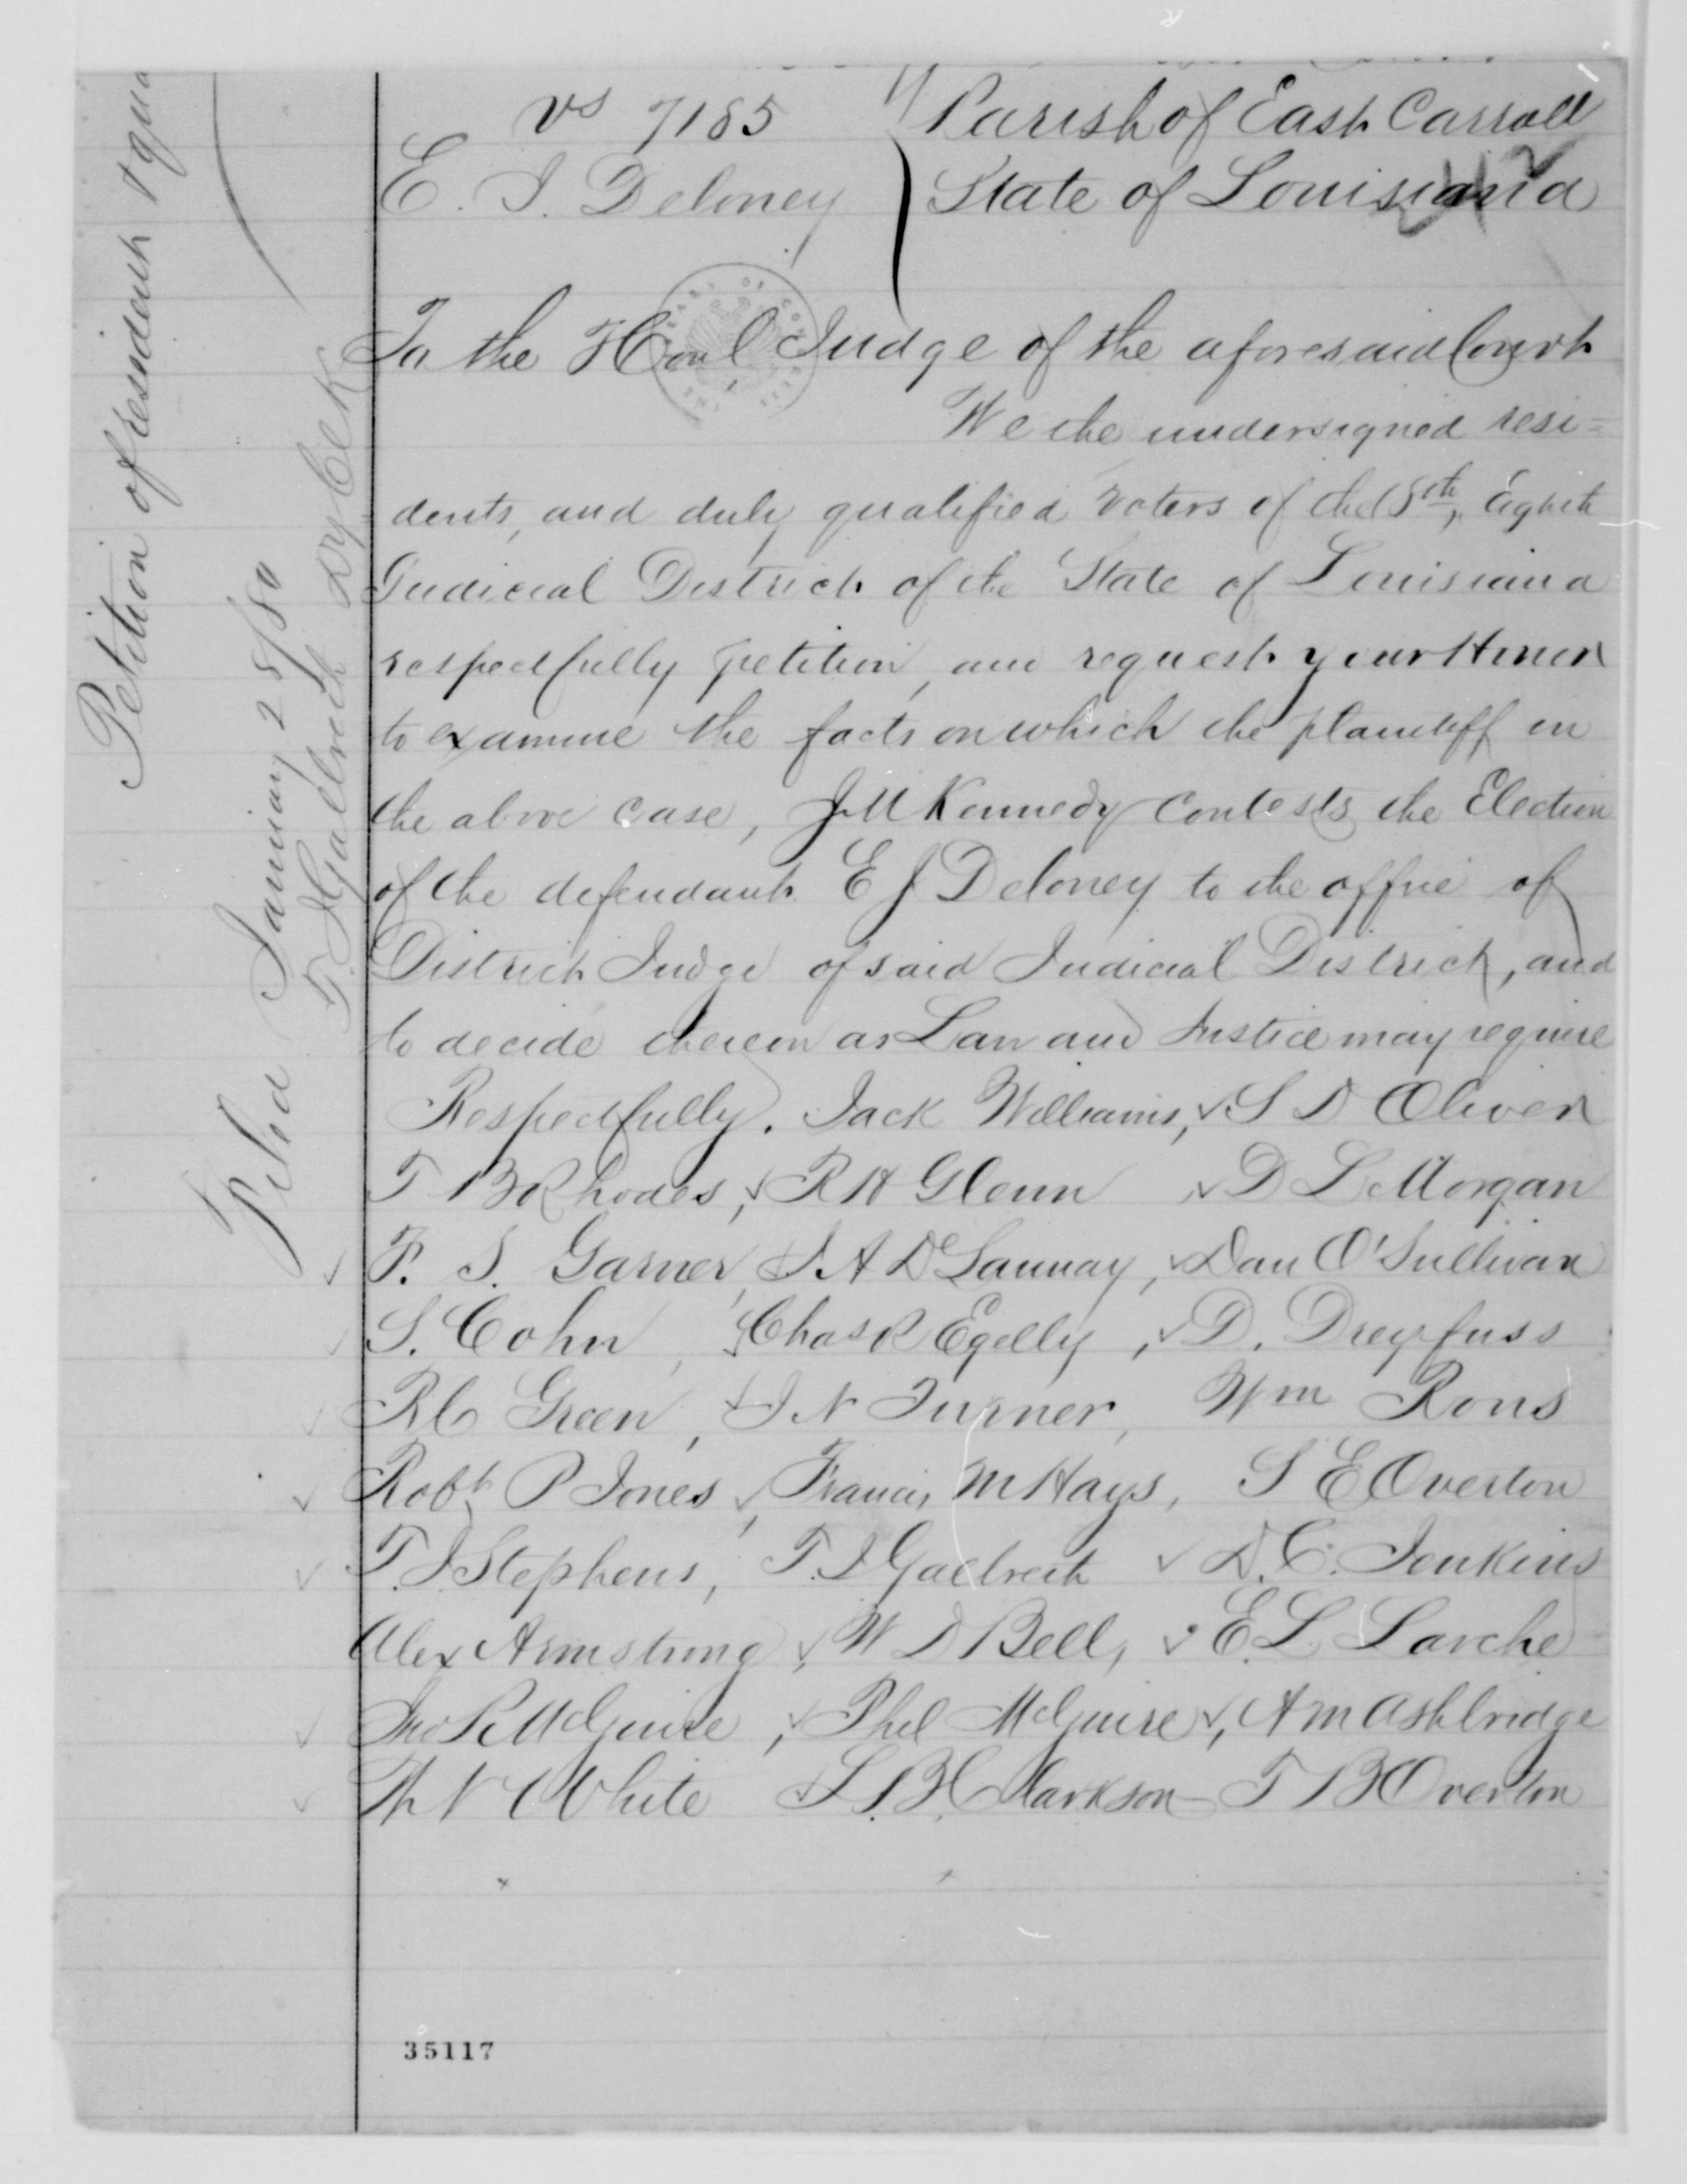 vs 7185
Parish of East Carroll
E. J. Deloney
State of Louisiana
42
To the Honl Judge of the aforesaid Court
We the undersigned resi=
dents, and duly qualified voters of the 8th, Eighth
Judicial District of the State of Louisiana
respectfully petition, and request your Honor
to examine the facts on which the plaintiff in
the above case, J M Kennedy contests the Election
of the defendant E J Deloney to the office of
District Judge of said Judicial District, and
to decide thereon as Law and Justice may require
Respectfully. Jack Williams, S D Oliver
T B Rhodes, R H Glenn D L Morgan
F. S. Garner, J A DeLaunay, Dan O'Sullivan
S. Cohn, Chas R Egelly, D. Dreyfuss
R C Green, J N Turner, Wm Rous
Robt P Jones, Francis M Hays, S E Overton
T. J. Stephens, T. J Galbreth D. C. Jenkins
Alex Armstrong, W D Bell, E. L. Larche
Jno R McGuire, Phil McGuire, A M Ashbridge
Th N White L. B. Clarkson T B Overton
35117
Petition of resident &
Filed January 28/80
T. J Galbreth Dy Clk